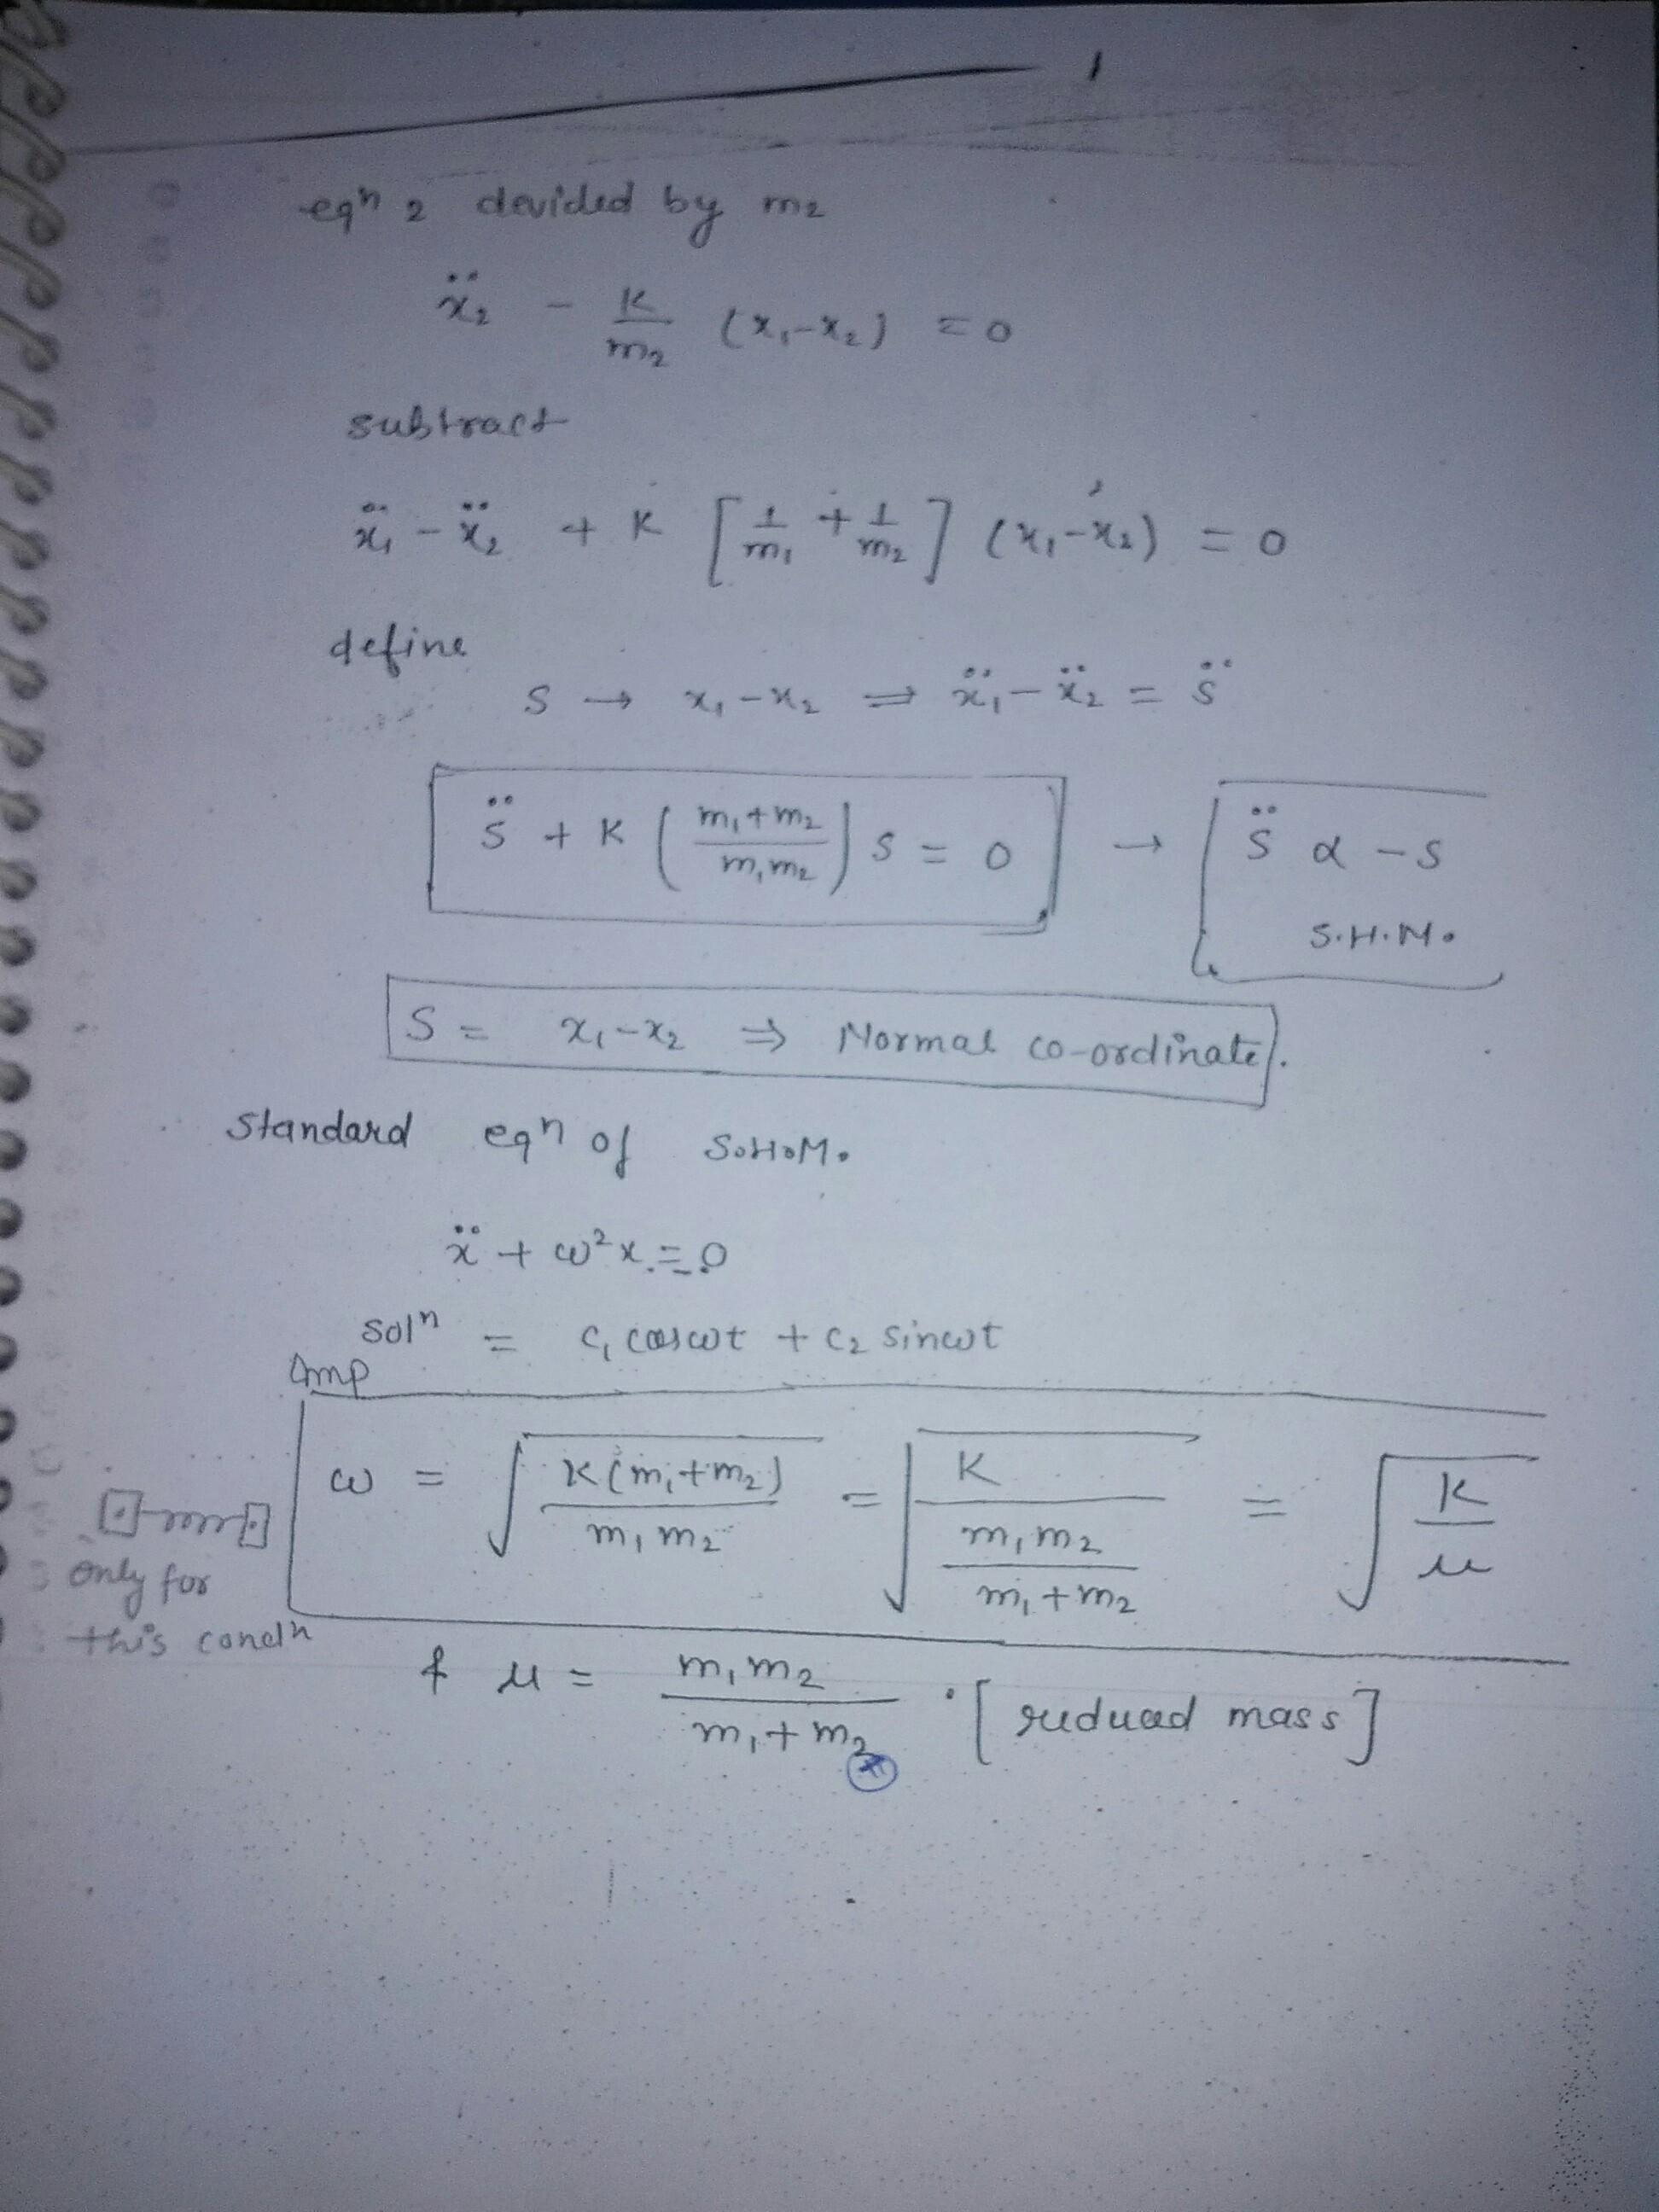 eqⁿ 2 devided by m₂
ẍ₂ - K/m₂ (x₁-x₂) = 0
subtract
ẍ₁ - ẍ₂ + K [1/m₁ + 1/m₂] (x₁-x₂) = 0
define
S → x₁-x₂ ⇒ ẍ₁-ẍ₂ = S̈
S̈ + K ((m₁+m₂)/(m₁m₂)) S = 0 → S̈ α -S
S.H.M.
S = x₁-x₂ ⇒ Normal co-ordinate.
Standard eqⁿ of S.H.M.
ẍ + ω²x = 0
solⁿ = C₁ cosωt + C₂ sinωt
Imp
ω = √(K(m₁+m₂)/(m₁m₂)) = √(K/(m₁m₂/(m₁+m₂))) = √(K/μ)
only for
this condⁿ
& μ = m₁m₂/(m₁+m₂) · [reduced mass]